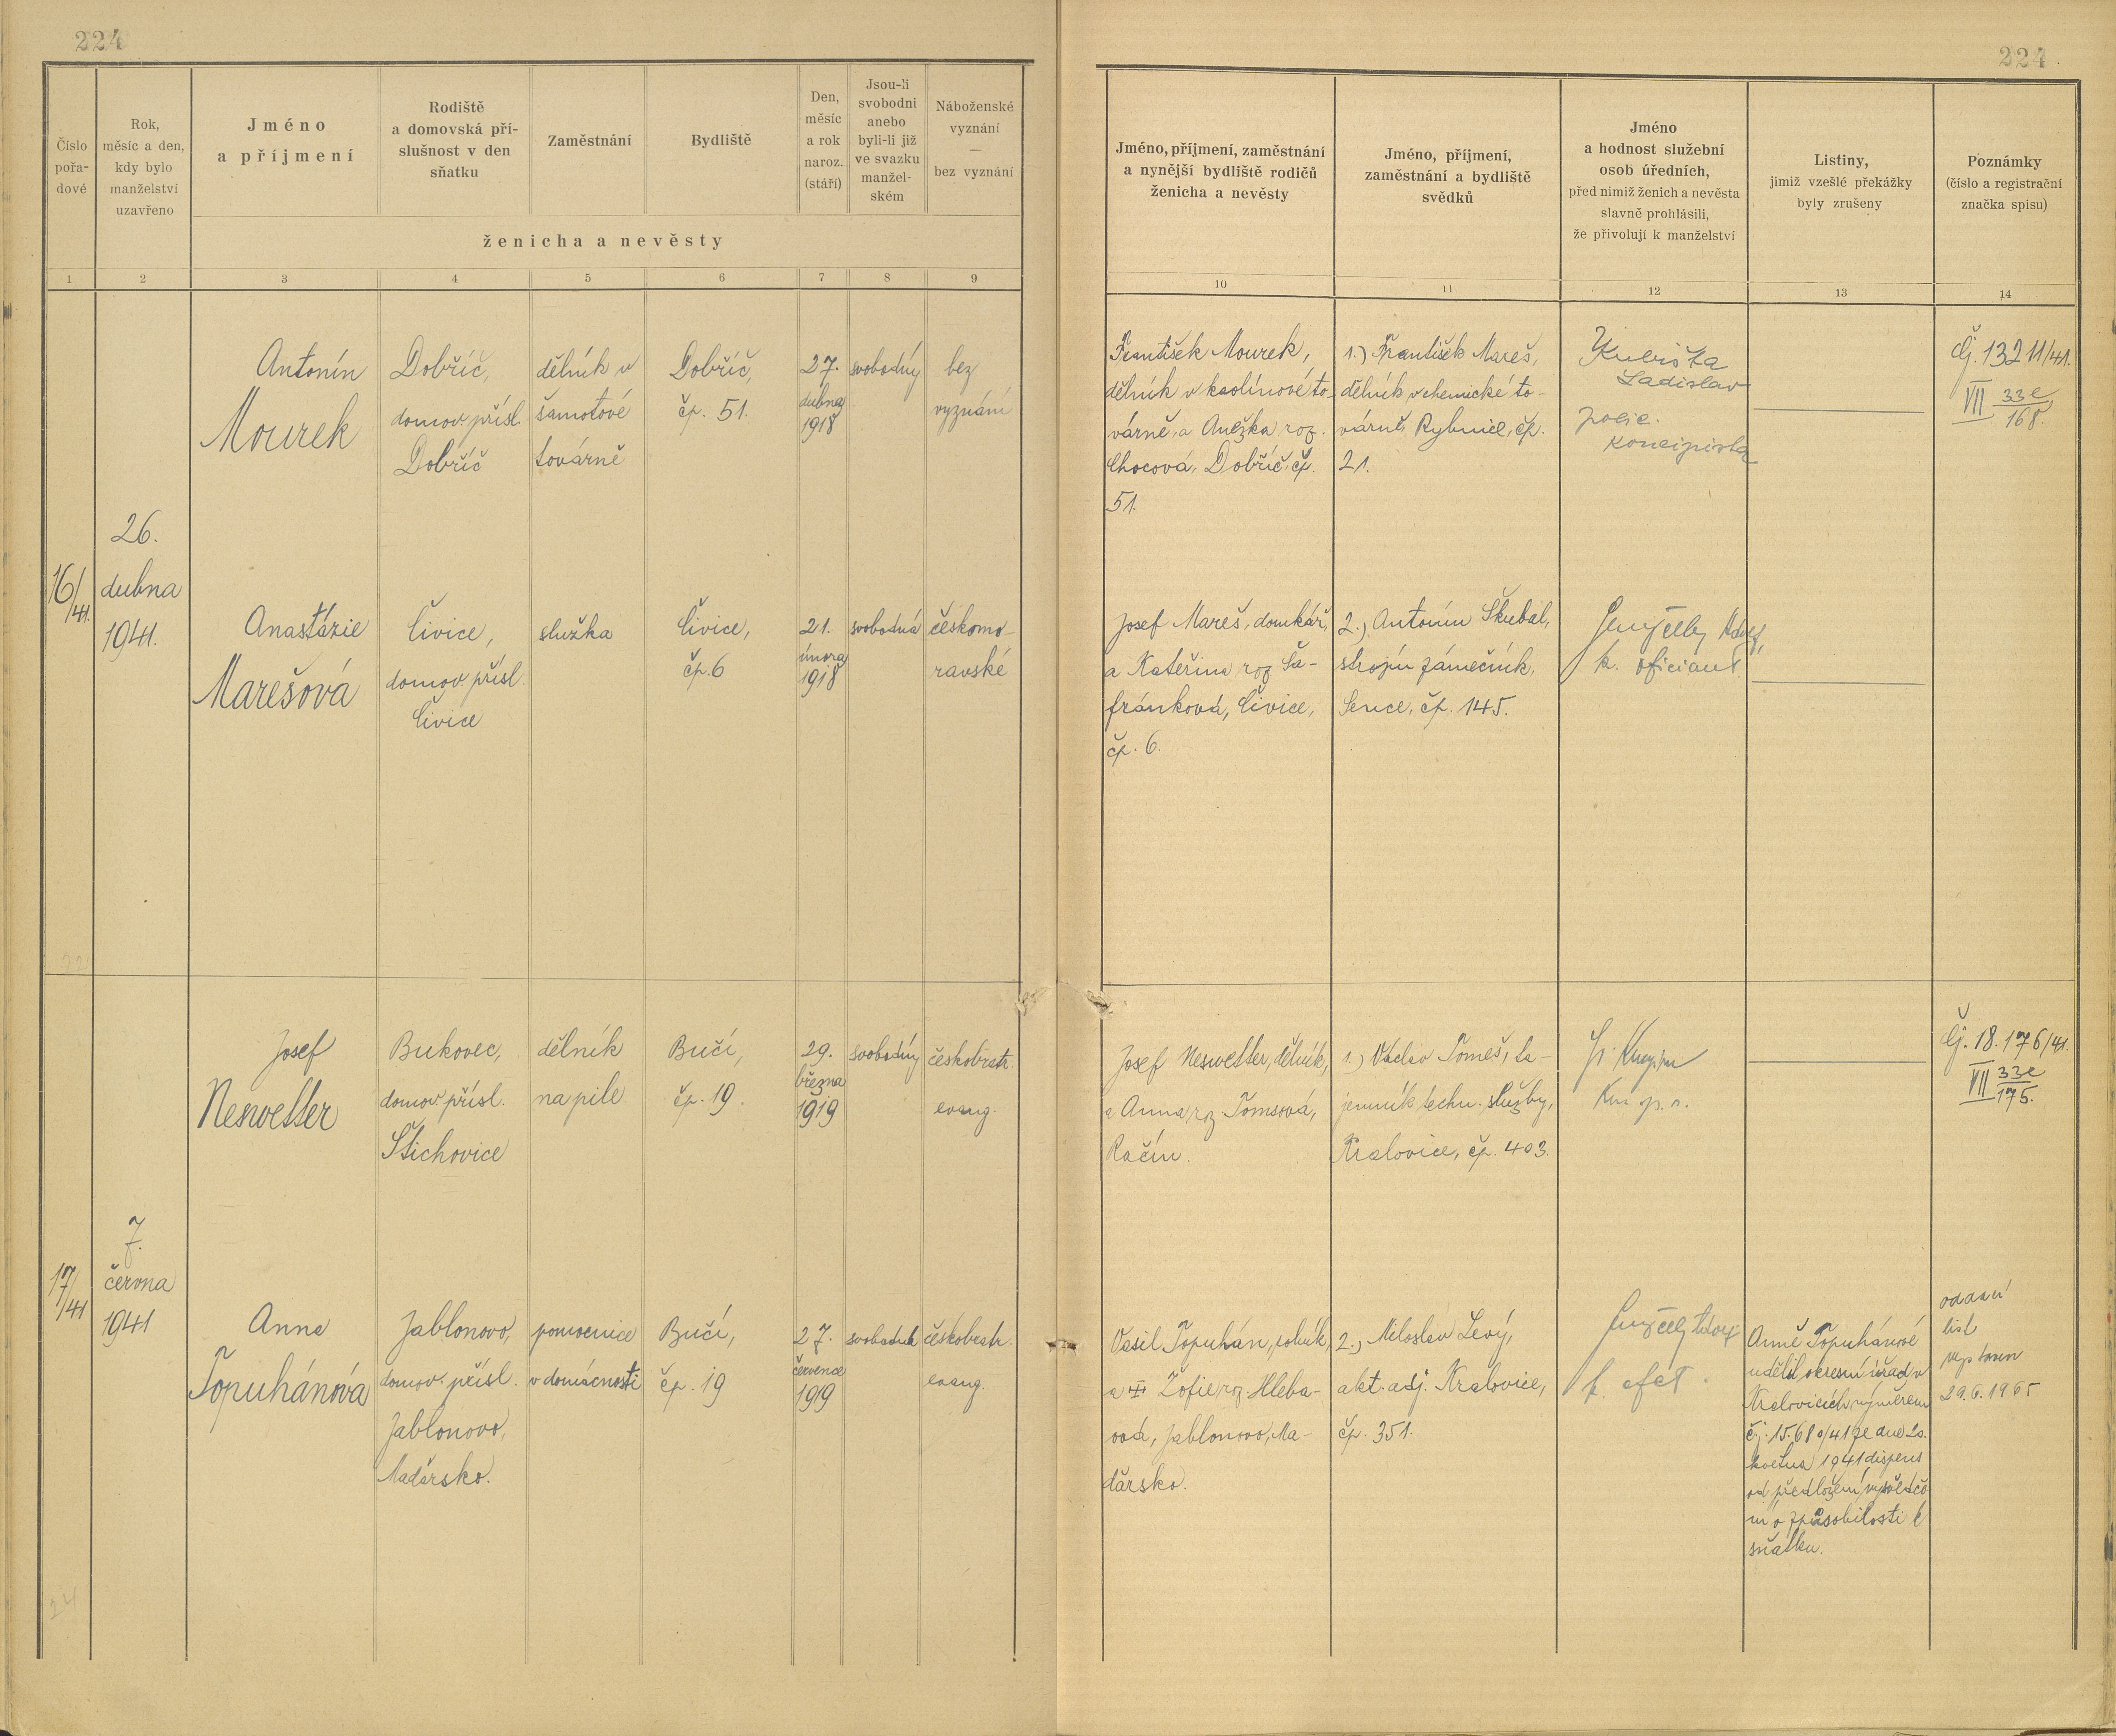 224
224
Číslo
pořa-
dové
Rok,
měsíc a den,
kdy bylo
manželství
uzavřeno
Jméno
a příjmení
Rodiště
a domovská pří-
slušnost v den
sňatku
Zaměstnání
Bydliště
Den,
měsíc
a rok
naroz.
(stáří)
Jsou-li
svobodni
anebo
byli-li již
ve svazku
manžel-
ském
Náboženské
vyznání
—
bez vyznání
ženicha a nevěsty
Jméno, příjmení, zaměstnání
a nynější bydliště rodičů
ženicha a nevěsty
Jméno, příjmení,
zaměstnání a bydliště
svědků
Jméno
a hodnost služební
osob úředních,
před nimiž ženich a nevěsta
slavně prohlásili,
že přivolují k manželství
Listiny,
jimiž vzešlé překážky
byly zrušeny
Poznámky
(číslo a registrační
značka spisu)
1 2 3 4 5 6 7 8 9 10 11 12 13 14
16/41.
26.
dubna
1941.
Antonín
Mourek
Dobříč,
domov. přísl.
Dobříč
dělník v
šamotové
továrně
Dobříč,
čp. 51.
27.
dubna
1918
svobodný
bez
vyznání
František Mourek,
dělník v kaolínové to-
várně, a Anežka roz.
Chocová, Dobříč, čp.
51.
1.) František Mareš,
dělník v chemické to-
várně, Rybnice, čp.
21.
Kubiška
Ladislav
polic.
koncipista
Čj. 13211/41.
VII 33e/168.
Anastázie
Marešová
Čivice,
domov. přísl.
Čivice
služka
Čivice,
čp. 6
21.
února
1918
svobodná
českomo-
ravské
Josef Mareš, domkář,
a Kateřina roz. Ša-
fránková, Čivice,
čp. 6.
2.) Antonín Škubal,
strojní zámečník,
Senec, čp. 145.
k. oficiant
17/41
7.
června
1941
Josef
Neswetter
Bukovec,
domov. přísl.
Štichovice
dělník
na pile
Bučí,
čp. 19.
29.
března
1919
svobodný
českobratr.
evang.
Josef Neswetter, dělník,
a Anna roz. Tomsová,
Račín.
1.) Václav Tomeš, ta-
jemník techn. služby,
Kralovice, čp. 403.
Čj. 18.176/41.
VII 33e/175.
Anna
Topuhánová
Jablonovo,
domov. přísl.
Jablonovo,
Maďarsko.
pomocnice
v domácnosti
Bučí,
čp. 19
27.
července
1919
svobodná
českobratr.
evang.
Vasil Topuhán, rolník,
a Žofie roz. Hleba-
ová, Jablonovo, Ma-
ďarsko.
2.) Miloslav Levý,
akt. adj. Kralovice,
čp. 351.
Anně Topuhánové
udělil okresní úřad v
Kralovicích výměrem
č.j. 15.680/41 ze dne 20.
května 1941 dispens
od předložení vysvědče
ní o způsobilosti k
sňatku.
oddací
list
vyp
29.6.1965